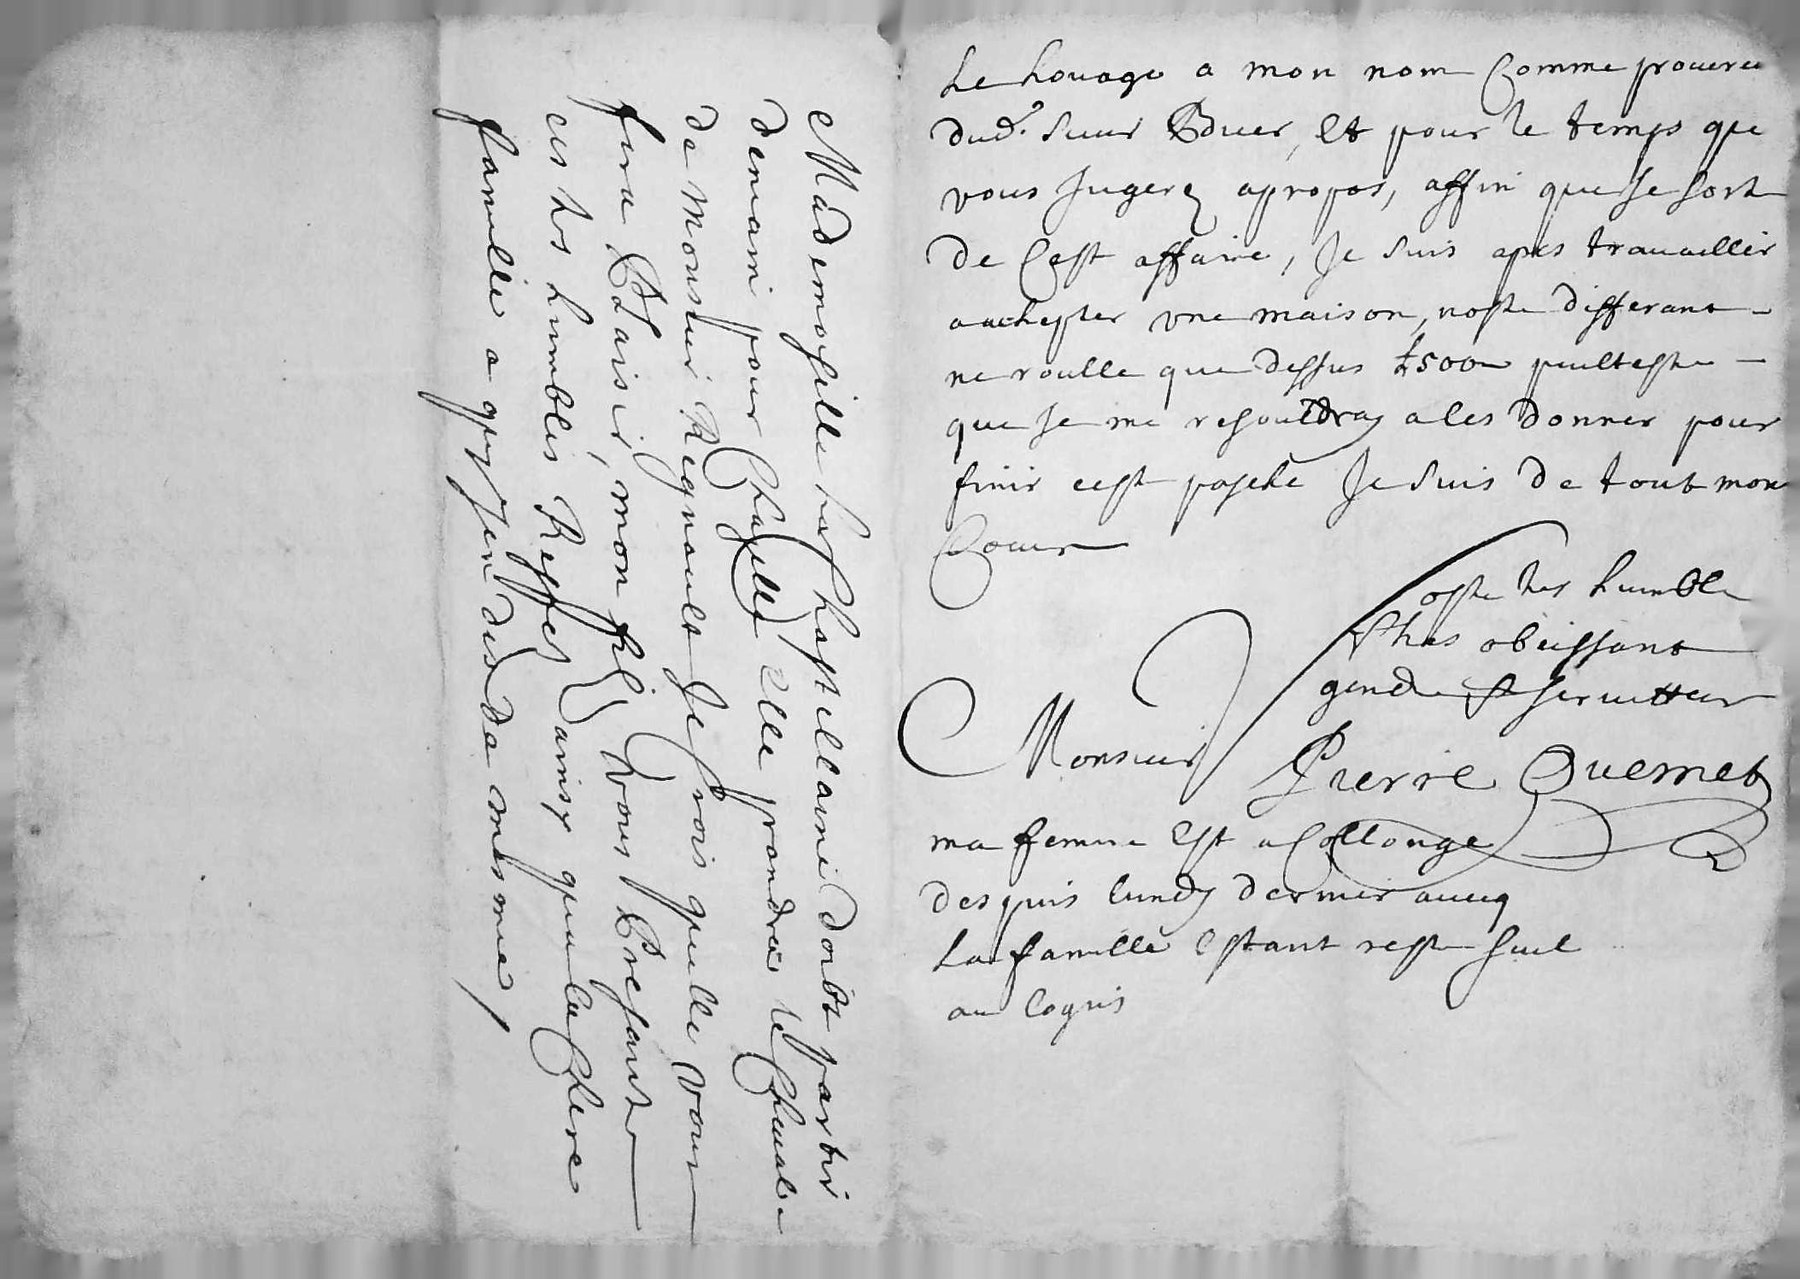 Le Louage a mon nom Comme procureur
dud. sieur et pour le temps que
vous Jugerez apropos, affin que Je sorte
de Cest affaire, Je suis apres travailler
a achepter une maison, nostre differant
ne roulle que dessus 500 peultestre
que Je me resouldray a les donner pour
finir cest Je suis de tout mon
Coeur
Monsieur
Vostre tres humble
& tres obeissant
gendre & serviteur
Pierre Quernet
ma femme Est a Collonge
despuis lundy dernier avecq
La famille Estant reste seul
au logis
Mademoiselle La doibt partir
demain pour Elle prandra le Cheval
de Monsieur Regnault Je Crois quelle vous
fera Plaisir, mon filz vous Presante
ces tres humbles Respet ainsy que la Chere
famille a qui J'en dis de mesme,